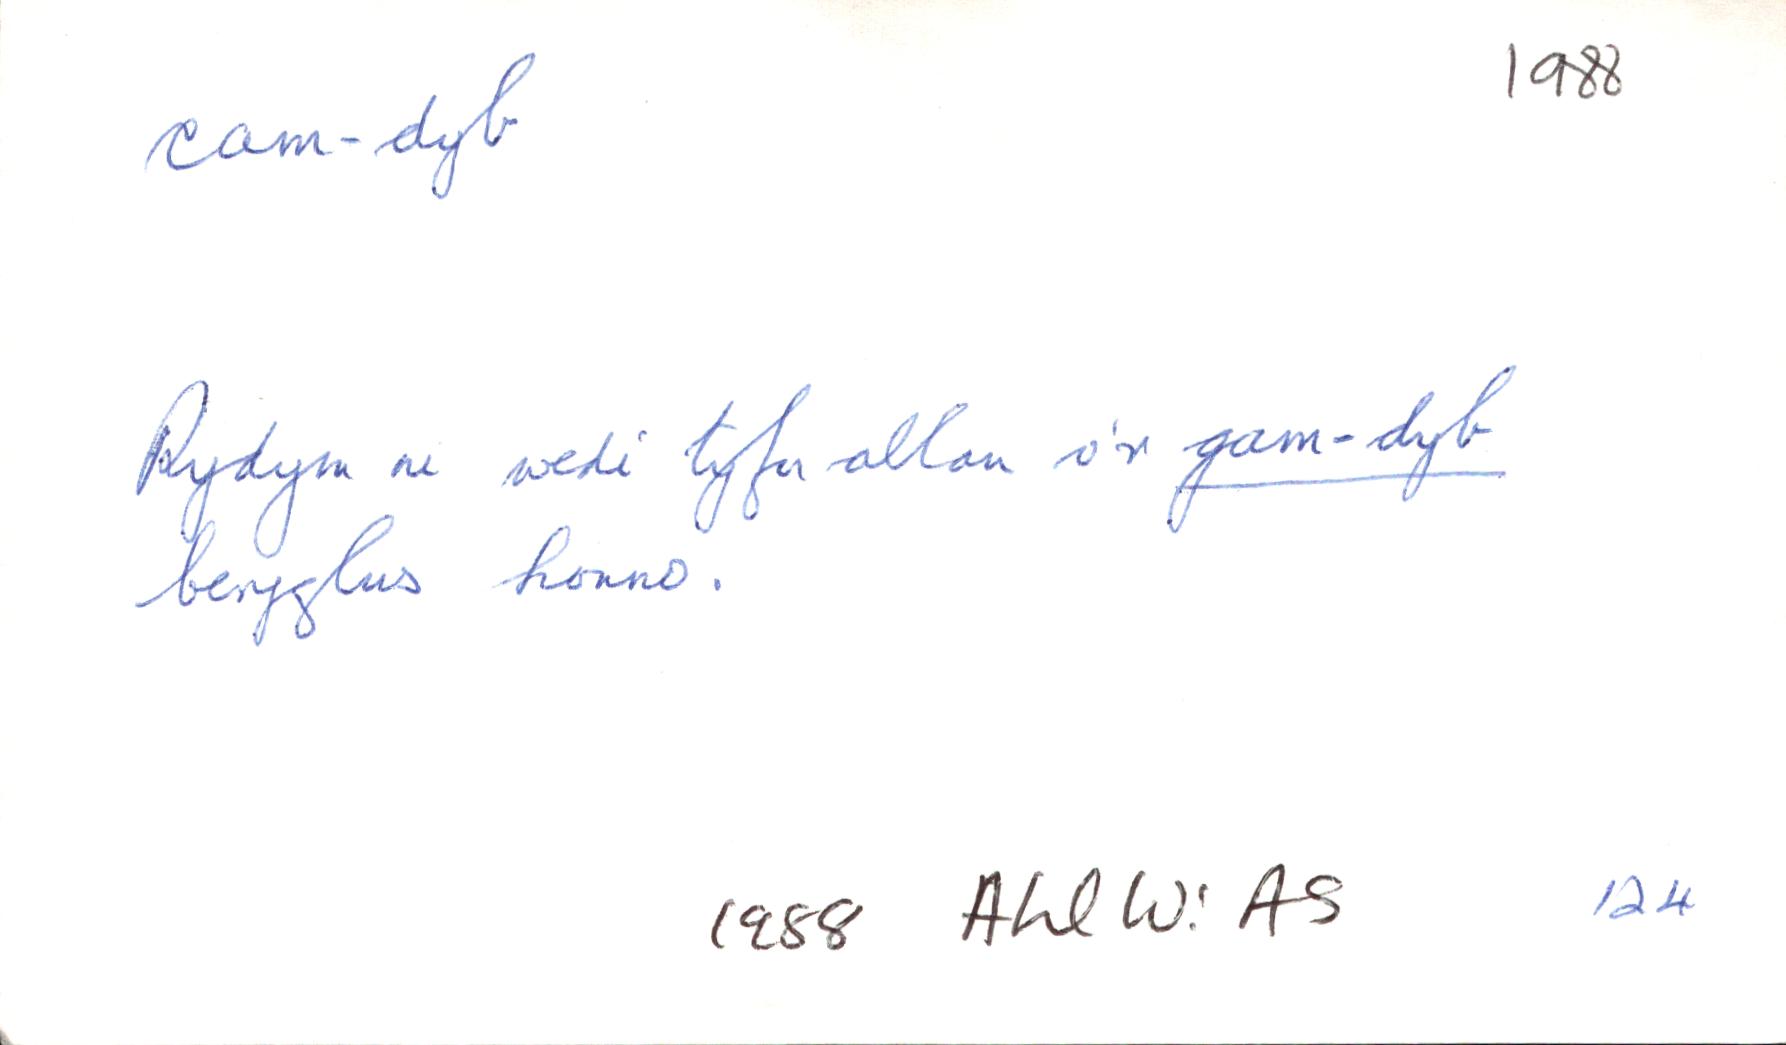 1988
cam-dyb
Rydym ni wedi tyfu allan o'r gam-dyb
beryglus honno.
1988 AHLW: AS 124